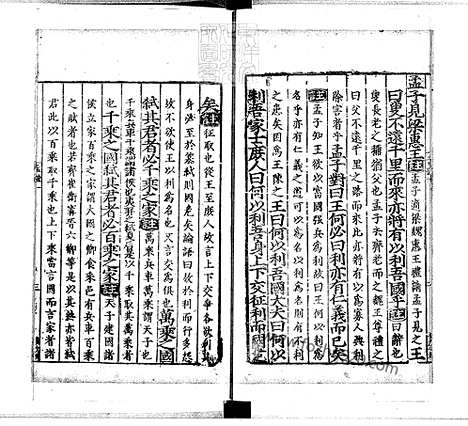 孟子見梁惠王註孟子適梁魏惠王禮請孟子見之王
曰叟不遠千里而來亦將有以利吾國乎註曰辭也
叟長老之稱猶父也孟子去齊老而之魏王尊禮之
曰父不遠千里之路而來此亦將有以為寡人興利
除害者乎孟子對曰王何必曰利亦有仁義而已矣
註孟子知王欲以富國強兵為利故曰王何以利為
名乎亦有仁義之道可以為名以利為名則有不利
之患矣因為王陳之王曰何以利吾國大夫曰何以
利吾家士庶人曰何以利吾身上下交征利而國危
矣註征取也從王至庶人故言上下交爭各欲利其
身必至於篡弒則國危矣論語曰放於利而行多怨
故不欲使王以利為名也又言交為俱也萬乘之國
弒其君者必千乘之家註萬乘兵車萬乘謂天子也
千乘兵車千乘謂諸侯也夷羿之弒夏后是以千乘取其萬乘者
也千乘之國弒其君者必百乘之家註天子建國諸
侯立家百乘之家謂大國之卿食采邑有兵車百乘
之賦者也若齊崔衛甯晉六卿等是以其終亦皆弒
君此以百乘取千乘也上千乘當言國而言家者諸